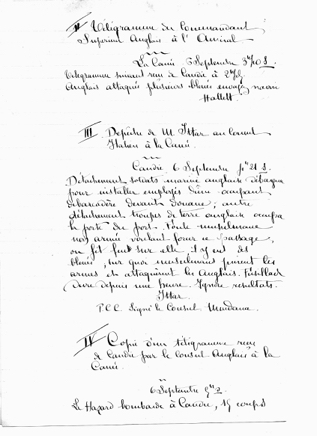 II Télégramme du Commandant
Supérieur Anglais à l'Amiral
La Canée 6 Septembre
Télégramme suivant reçu de Candie à
Anglais attaqués plusieurs blessés envoyez
III Dépêche de M. Ittar au Consul
Italien à la Canée.
Candie 6 Septembre
Détachement soldats marine anglais
pour installer employés dîme occupant
débarcadère devant douane; autre
détachement troupes de terre anglais occupa
la porte du port. Foule musulmane
non armée voulant forcer le passage,
on fit feu sur elle il y eut des
blessés, sur quoi musulmans prirent les
armes et attaquèrent les Anglais.
dure depuis une heure. Ignore résultats.
Ittar.
P.C.C. Signé le Consul
IV Copie d'un télégramme reçu
de Candie par le Consul Anglais à la
Canée.
6 Septembre
Le Hazard bombarde à Candie, 15 coups